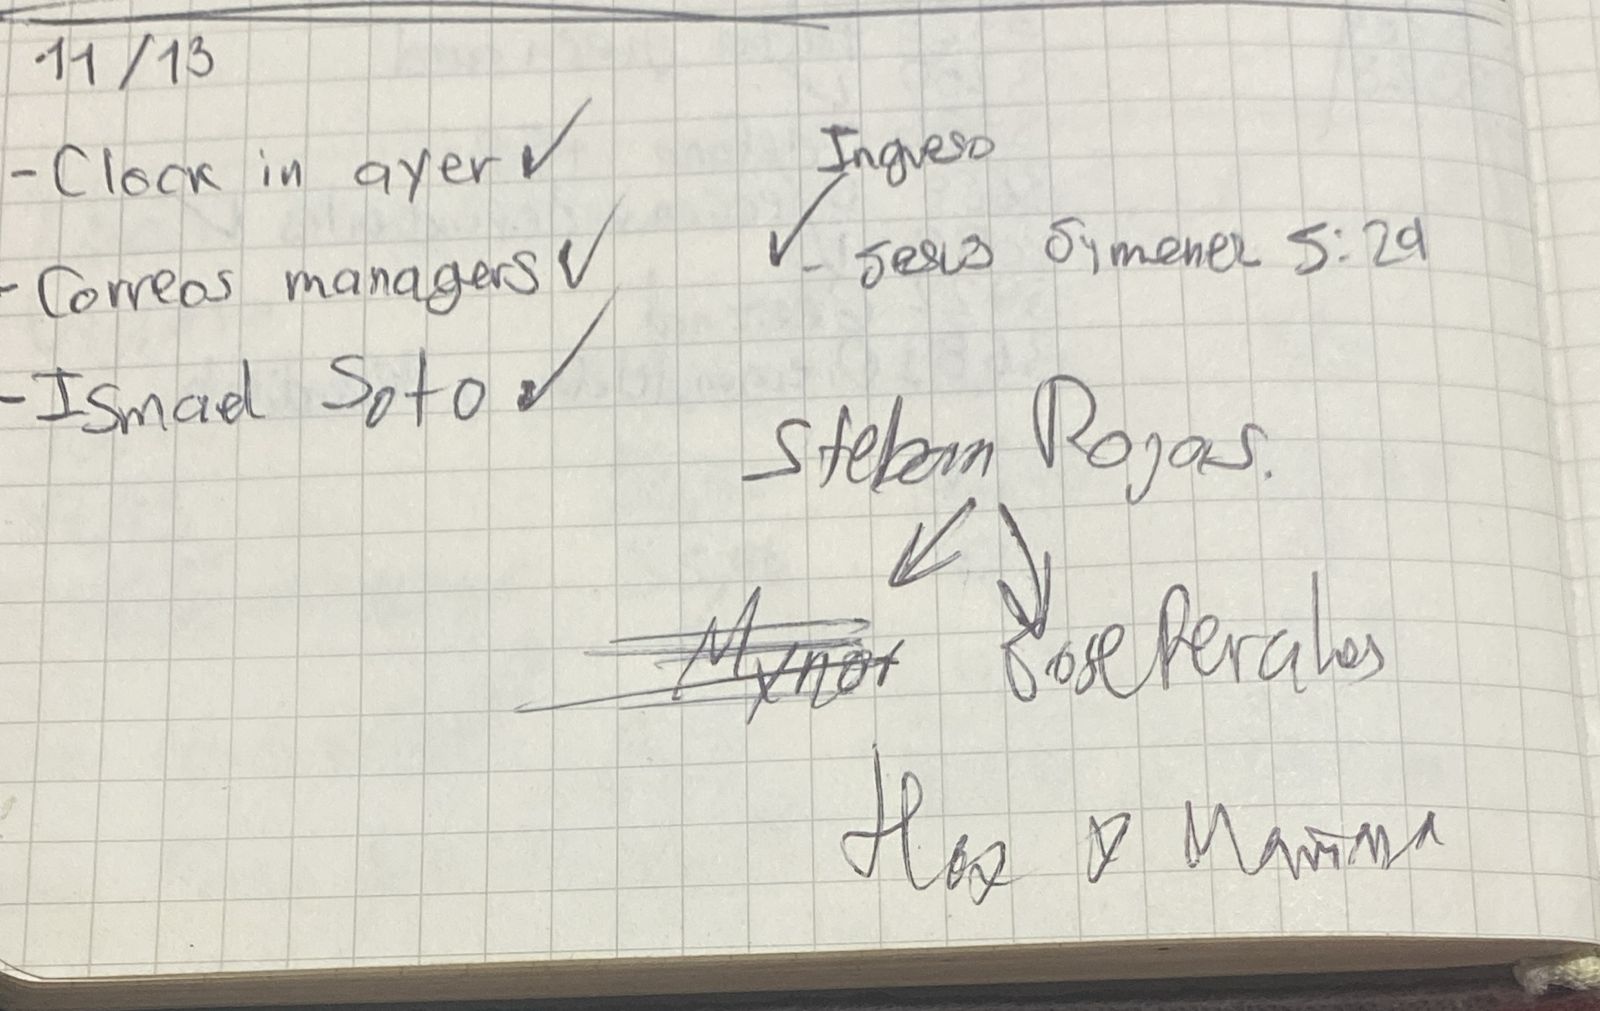 11/13
- Clock in ayer ✓
- Correos managers ✓
- Ismael Soto ✓
Ingreso
✓ - Jesus Jimenez 5:29
Steban Rojas.
Mynor Jose Perales
Hoy y Mañana